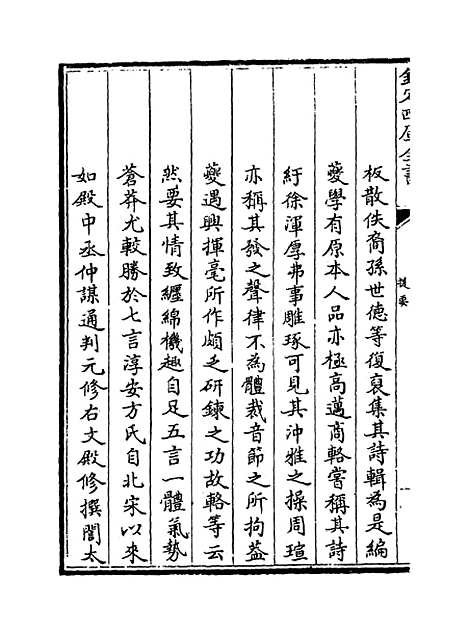 欽定四庫全書
提要
板散佚裔孫世德等復裒集其詩輯為是編
夔學有原本人品亦極高邁商輅嘗稱其詩
紆徐渾厚弗事雕琢可見其沖雅之操周瑄
亦稱其發之聲律不為體裁音節之所拘葢
夔遇興揮毫所作頗乏研鍊之功故輅等云
然要其情致纏綿機趣自足五言一體氣勢
蒼莽尤較勝於七言淳安方氏自北宋以來
如殿中丞仲謀通判元修右文殿修撰誾太